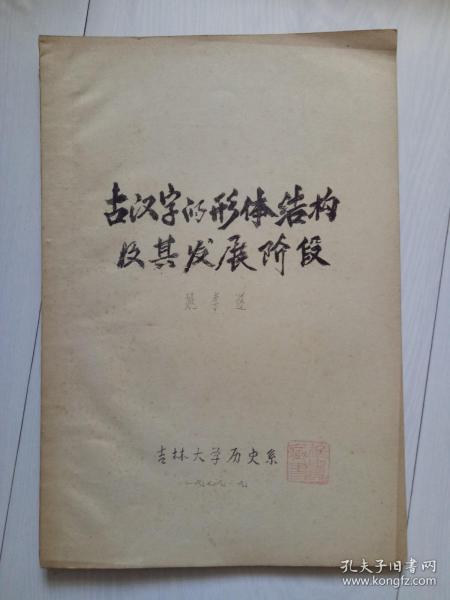 古汉字的形体结构
及其发展阶段
姚孝遂
吉林大学历史系
一九七九·九
孔夫子旧书网
www.kongfz.com